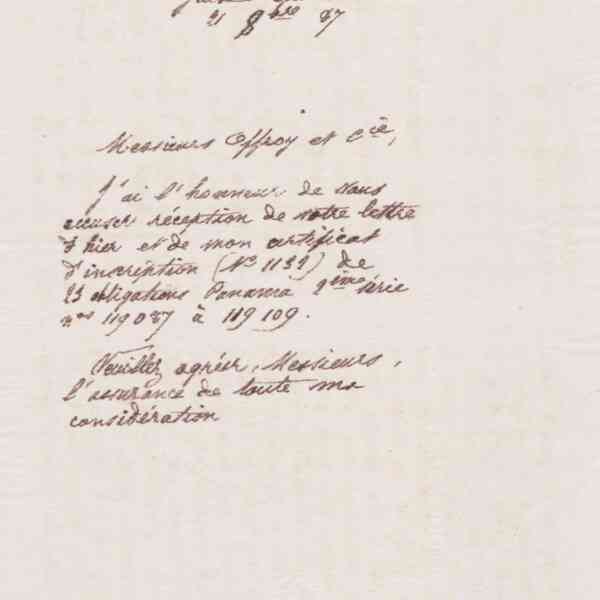 21 8bre 87
Messieurs Offroy et Cie,
J'ai l'honneur de vous
accuser réception de votre lettre
d'hier et de mon certificat
d'inscription (No 1132) de
23 obligations Panama 2ème série
nos 119087 à 119109.
Veuillez agréer, Messieurs,
l'assurance de toute ma
considération